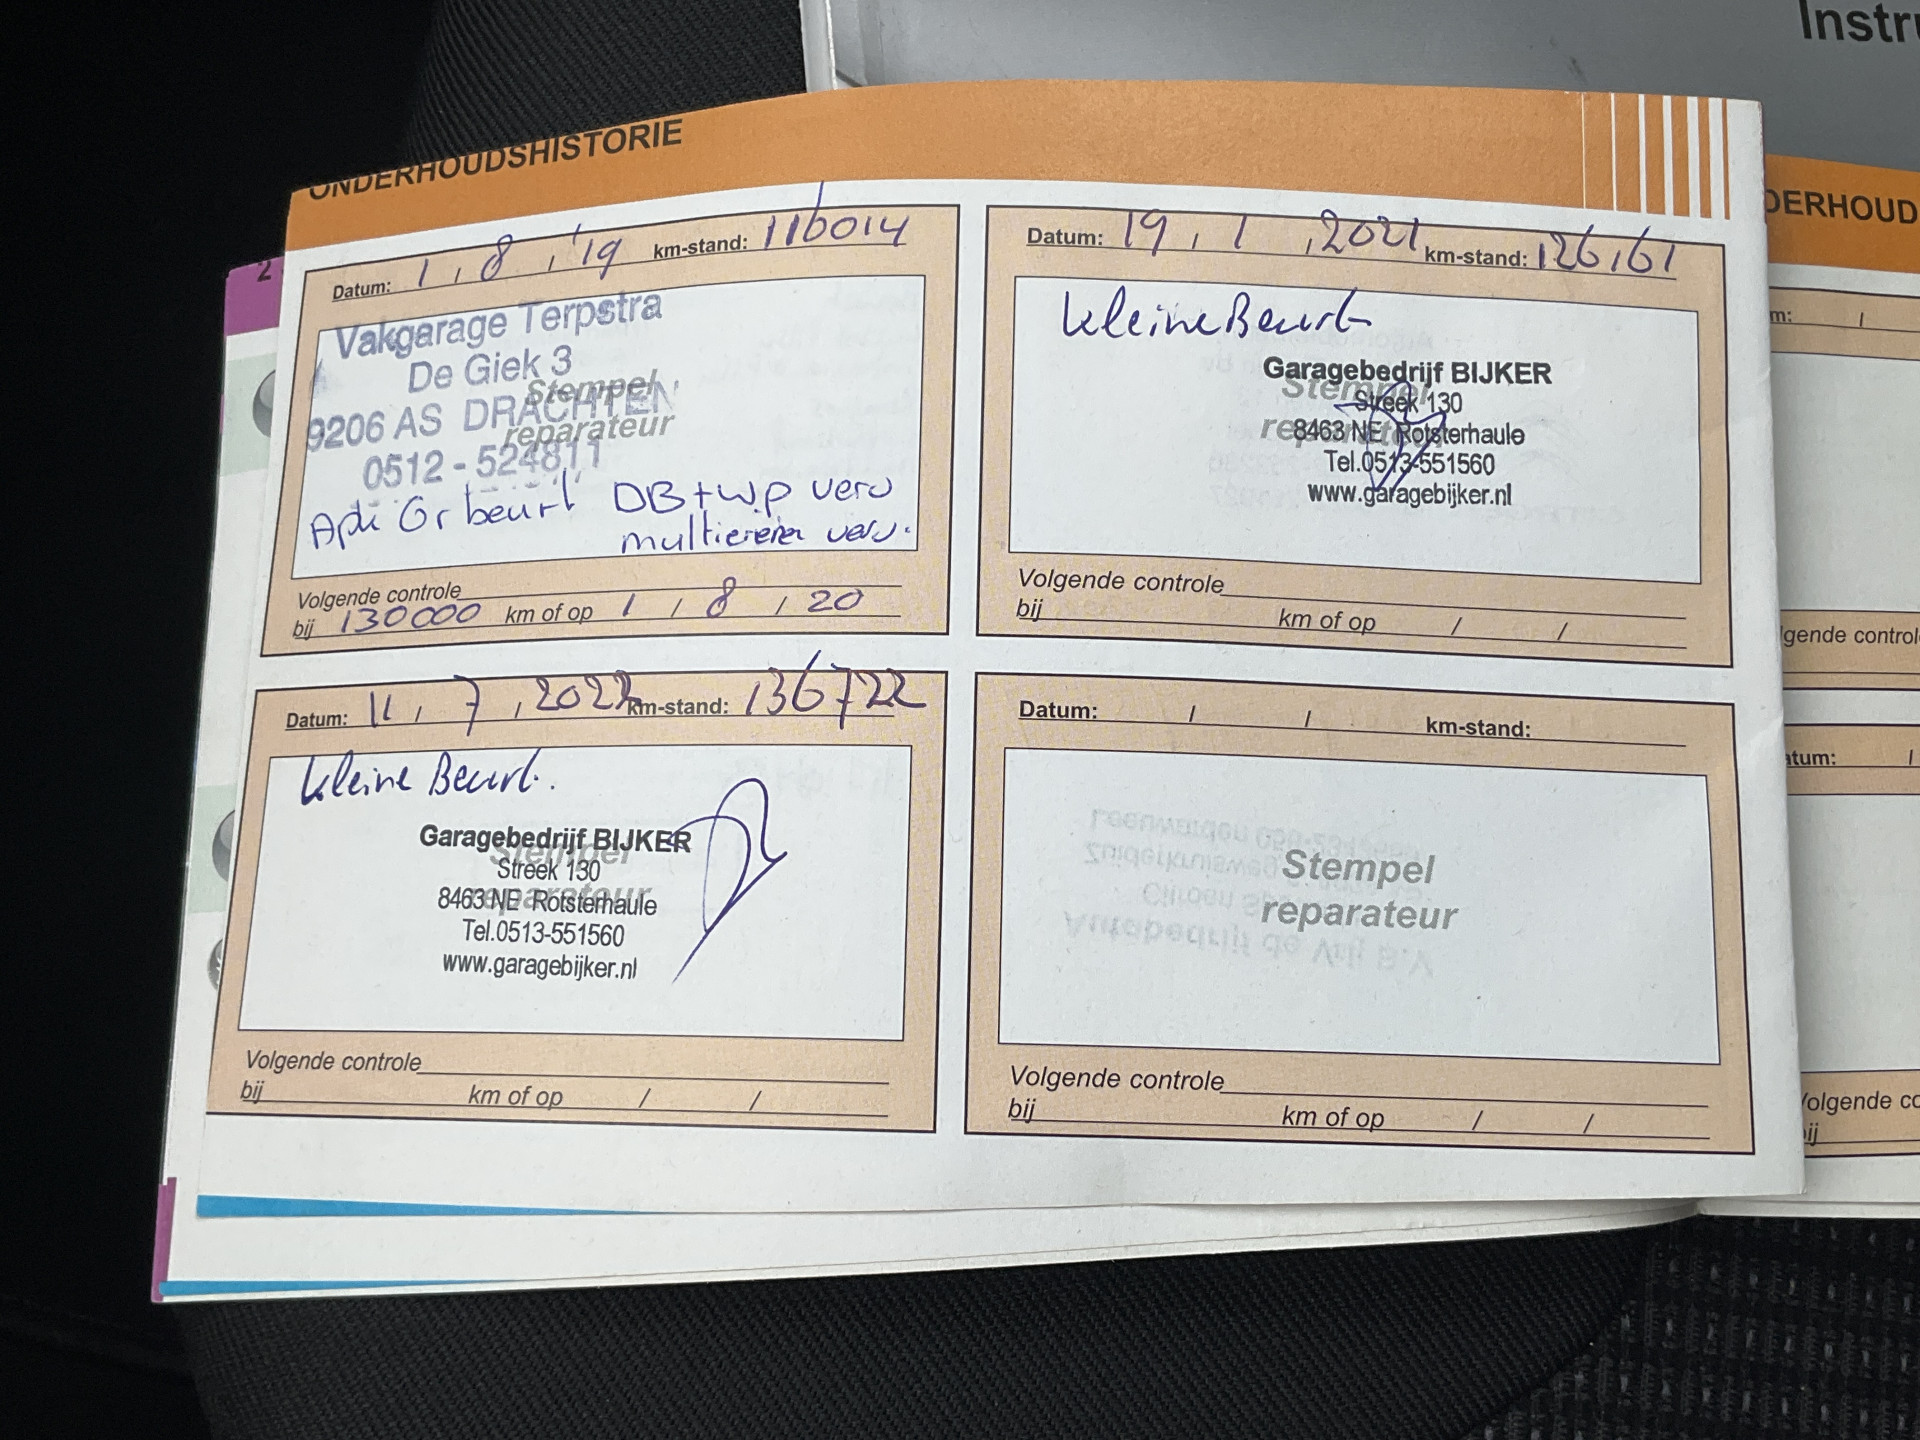 Instru
ONDERHOUDSHISTORIE
Datum: 1 / 8 / '19 km-stand: 116014
Vakgarage Terpstra
De Giek 3
9206 AS DRACHTEN
0512 - 524811
Stempel
reparateur
Apk Gr beurt DB + wp verv
multiriemen verv.
Volgende controle
bij 130000 km of op 1 / 8 / 20
Datum: 19 / 1 / 2021 km-stand: 126161
Kleine Beurt
Garagebedrijf BIJKER
Stempel
Streek 130
reparateur
8463 NE Rotsterhaule
Tel.0513-551560
www.garagebijker.nl
Volgende controle
bij km of op / /
Datum: 11 / 7 / 2022 km-stand: 136722
Kleine Beurt.
Garagebedrijf BIJKER
Stempel
Streek 130
reparateur
8463 NE Rotsterhaule
Tel.0513-551560
www.garagebijker.nl
Volgende controle
bij km of op / /
Datum: / / km-stand:
Stempel
reparateur
Volgende controle
bij km of op / /
2
DERHOUD
m: /
lgende control
atum: /
Volgende co
ij